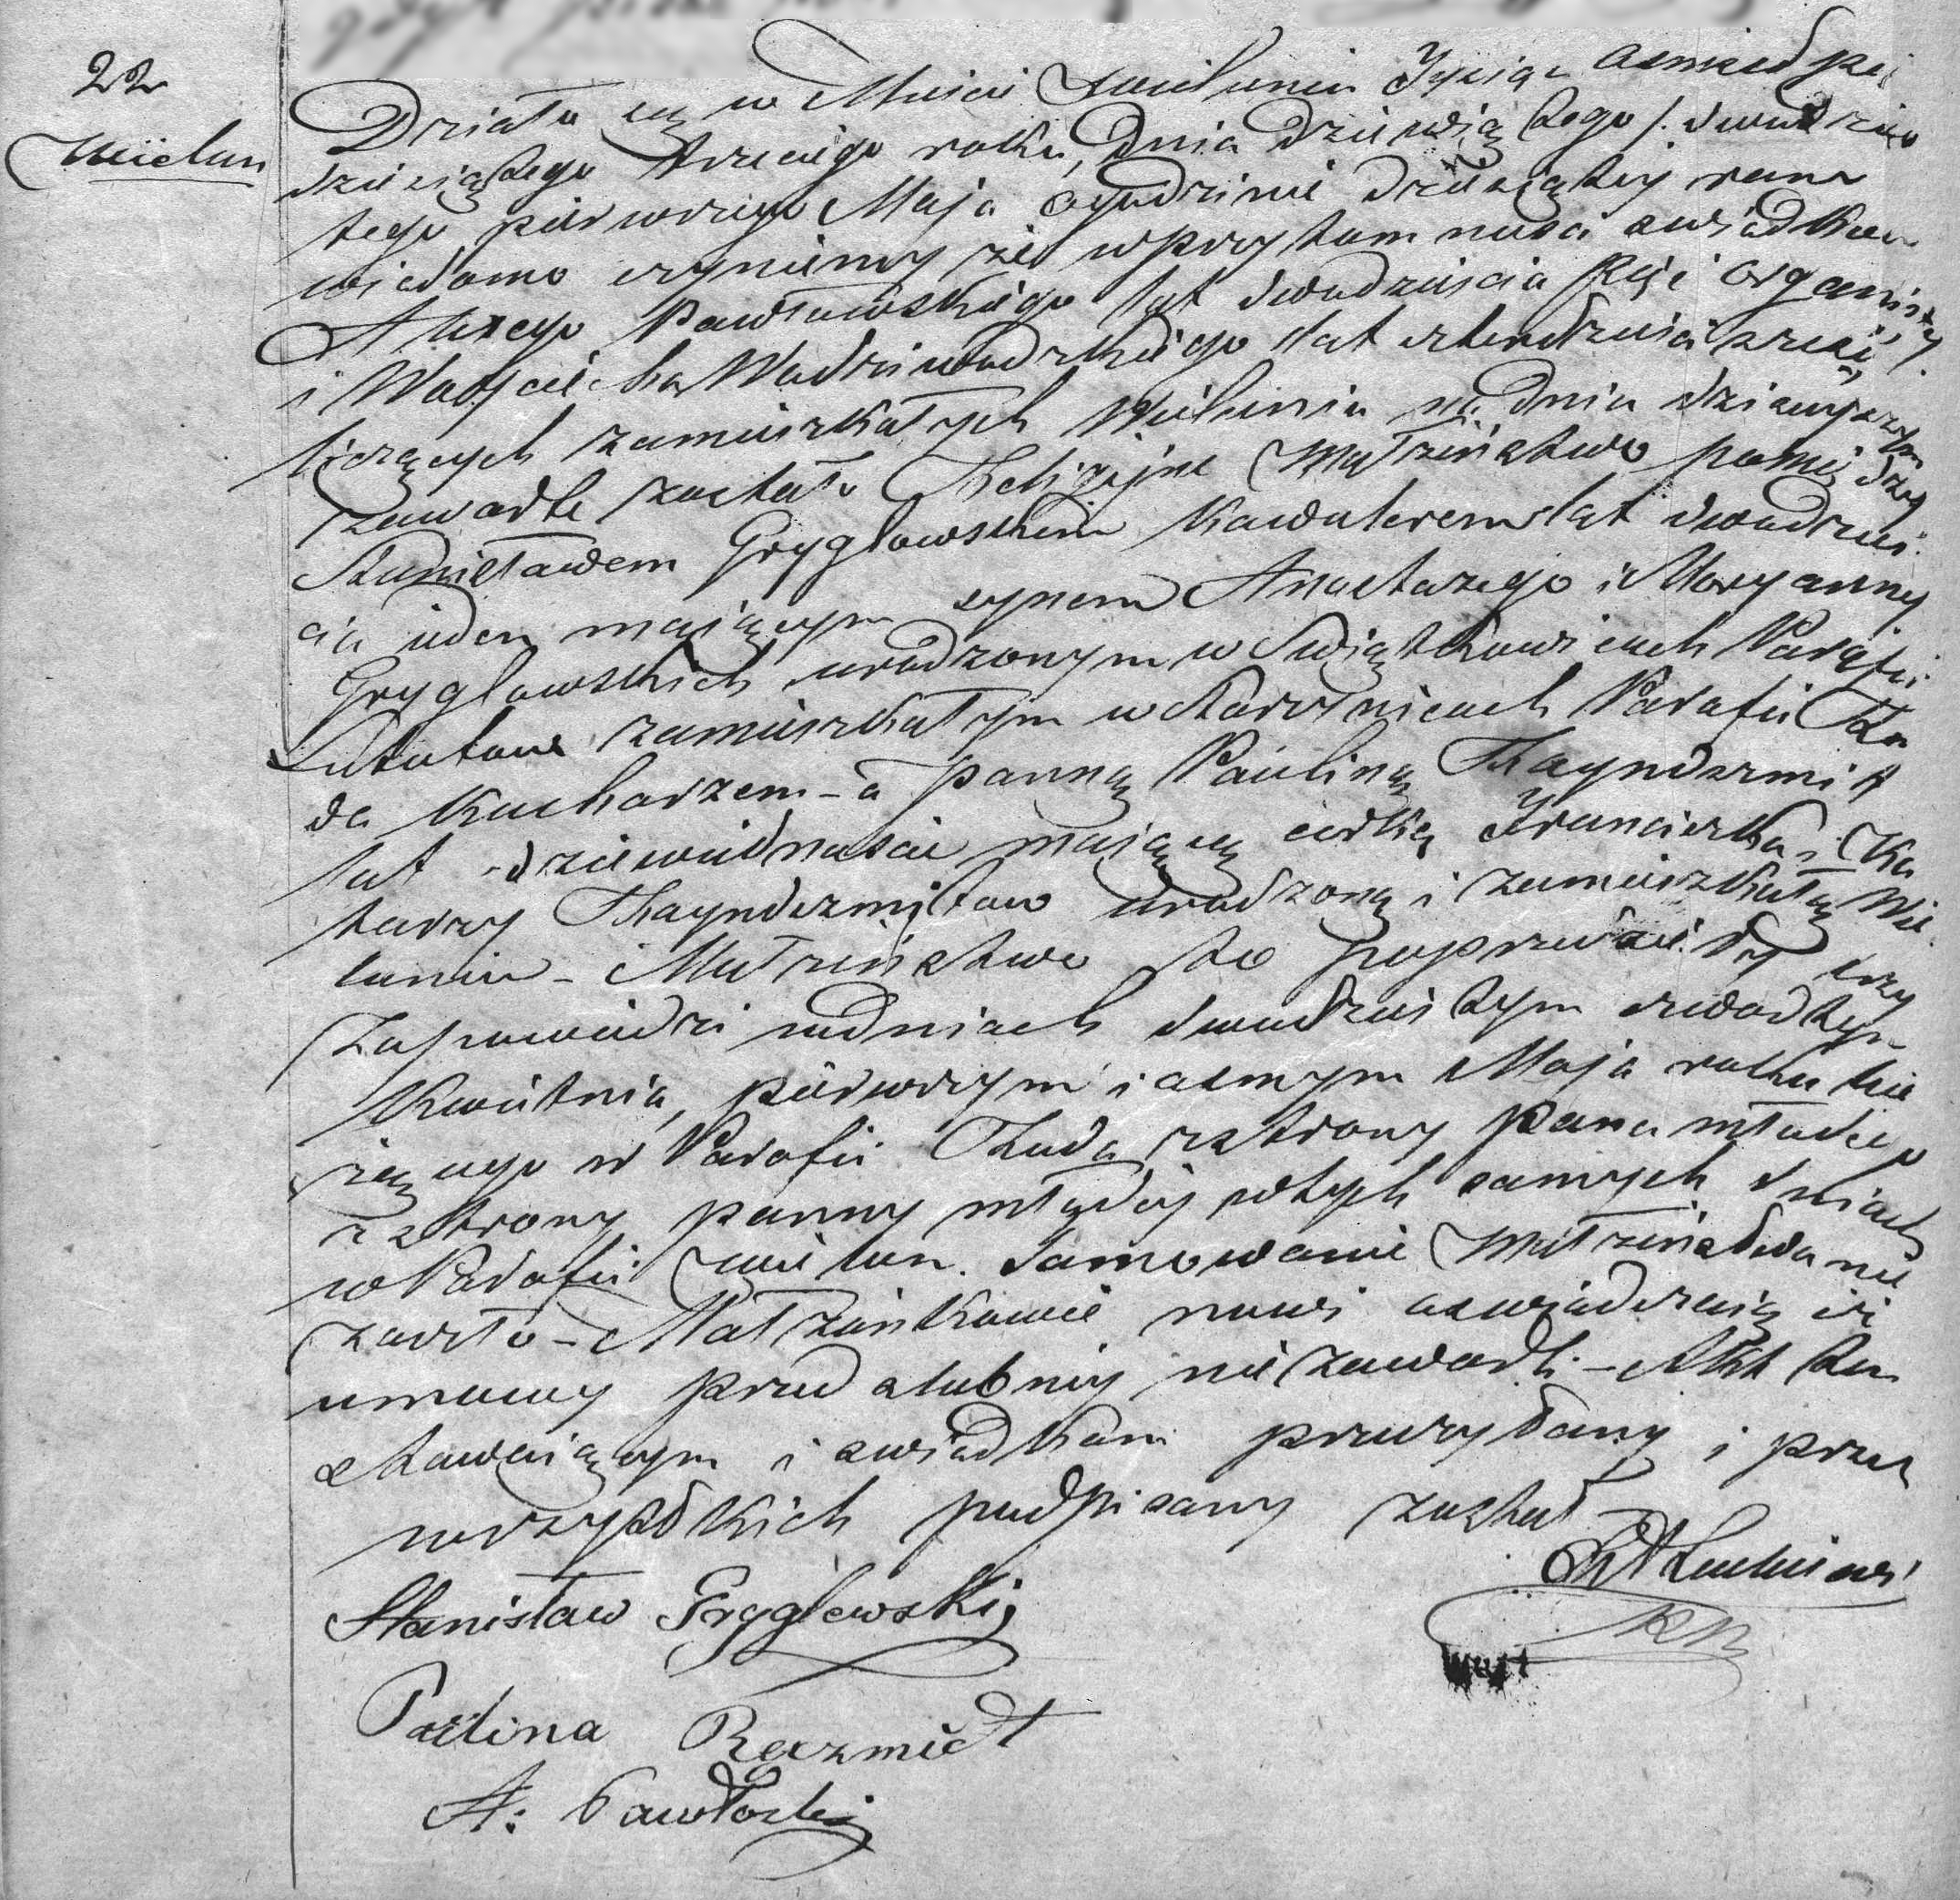 22
Wielun
Działo się w Mieście Wieluniu Tysiąc ośmset pię
dziesiątego trzeciego roku, dnia dziewiątego /: dwudzies
tego pierwszego Maja o godzinie dziesiątej rano
wiadomo czyniemy że w przytomności świadków
Pawłowskiego lat dwadzieścia pięć organisty
i Wojciecha lat czterdzieści sześć
liczących zamieszkałych Wieluniu na dniu dzisiejszym
zawarte zostało Religijne Małżeństwo pomiędzy
Stanisławem Gryglewskim Kawalerem lat dwadzieś
cia ieden mającym synem Anastazego i Maryanny
Gryglewskich urodzonym w Świątkowicach Parafii
Lututowa zamieszkałym w Starzenicach Parafii Ru
da Kucharzem – a panną Pauliną Rayndszmit
lat dziewietnaście mającą córką Franciszka i Ka
tarzy Rayndszmitow urodzoną i zamieszkałą Wie
luniu – Małżeństwo to poprzedziły trzy
Zapowiedzi w dniach dwudziestym czwartym
Kwietnia, pierwszym i osmym Maja roku bie
żącego w Parafii Ruda z strony pana młodego
z strony panny młodej w tych samych dniach
w Parafii Wielun. Tamowanie Małżeństwa nie
zaszło – Małżonkowie nowi oswiadczają iż
umowy przed slubnej nie zawarli – Akt ten
stawaiącym i swiadkom przeczytany i przez
wszystkich podpisany został –
Stanisław Gryglewski
Paulina Rexzmidt
A: Pawłoski